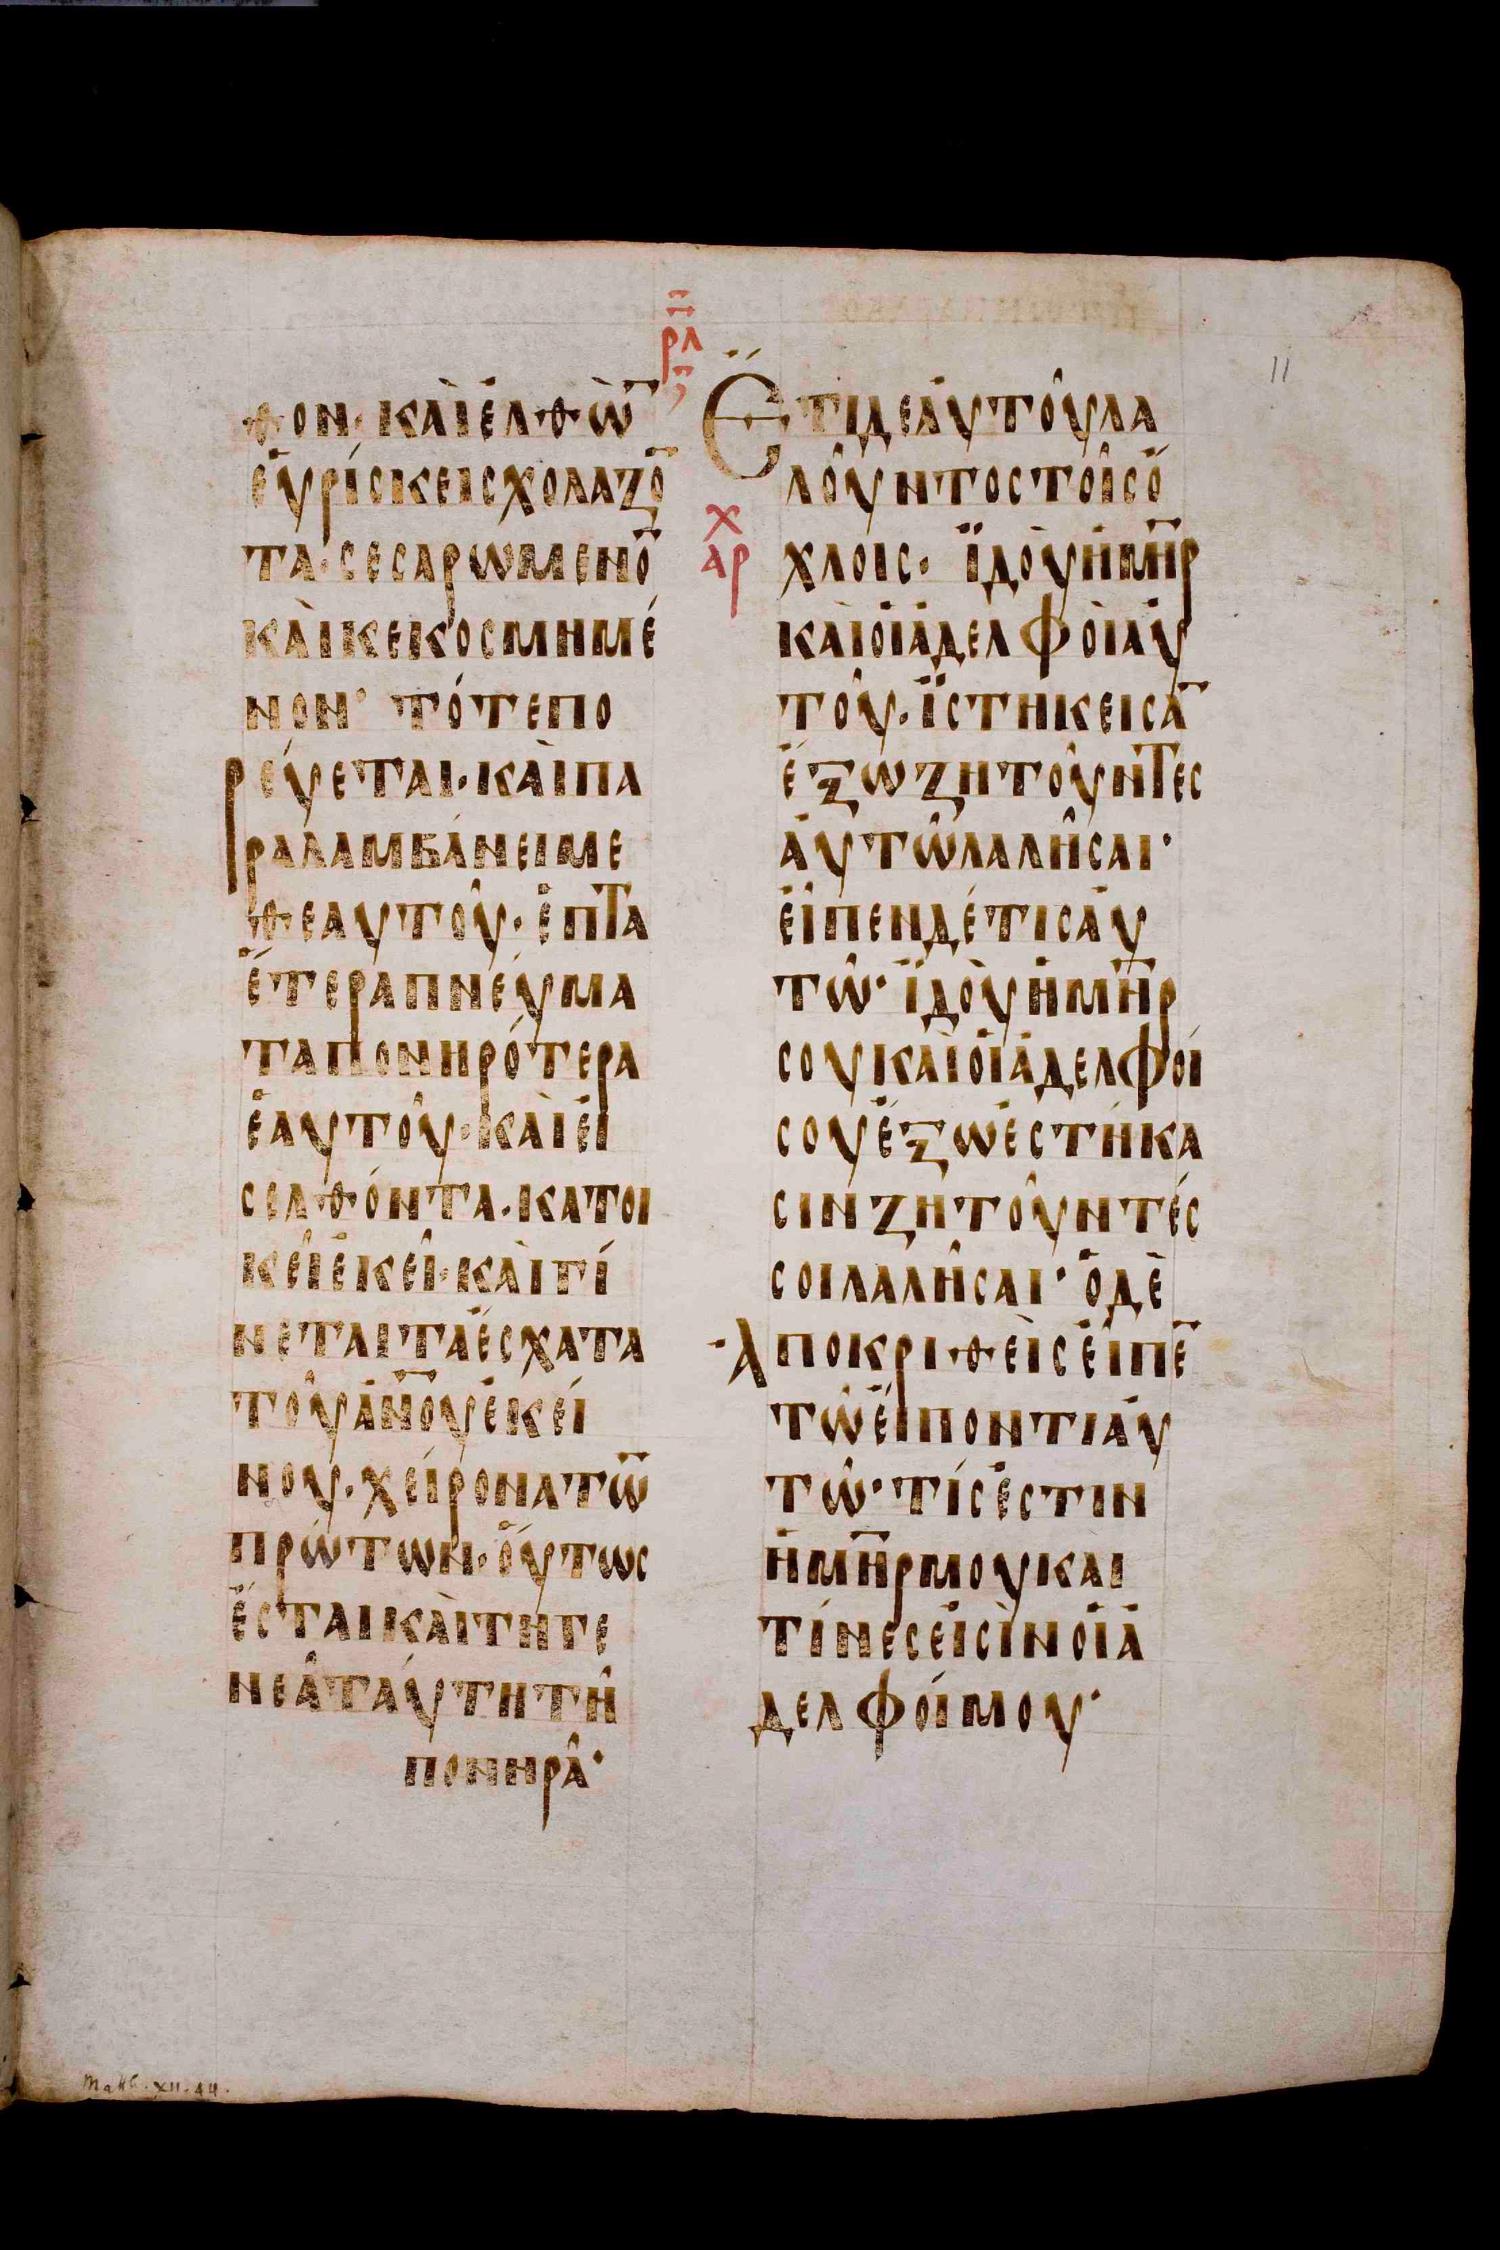 11
ρλ
θον· κὰὶἐλθὼ̄
ἑυρίσκεισχολάζο̄
τα· σεσαρωμένο̄
κὰὶκεκοσμημέ
νον· τότεπο
ρέυεται· κὰὶπα
ραλαμβάνειμε
θεαυτοῦ· ἑπτα
ἕτεραπνέυμα
ταπονηρότερα
ἑαυτοῦ· κὰὶἐι
σελθόντα· κατοι
κεῖἐκεῖ· κὰὶγί
νεταιτὰἔσχατα
τοῦἀν̅ο̅υ̅ἐκεί
νου· χείρονατῶ̄
πρώτων· ὅυτως
ἔσταικὰὶτῆγε
νεᾶταύτητῆ
πονηρᾶ·
χ
αρ
Ἔτιδεἀυτοῦλα
λοῦντοςτοῖςὄ
χλοις· ϊδοὺἡμη̅ρ
κὰὶὁιἀδελφὸιἀυ
τοῦ· ϊστήκεισα̅
ἔξωζητοῦντες
ἀυτῶλαλῆσαι·
ἐῖπενδέτιςἀυ
τῶ· ϊδοὺἡμη̅ρ
σουκὰὶὁιἀδελφοί
σουἔξωἑστήκα
σινζητοῦντές
σοιλαλῆσαι· ὁδὲ
ἀποκριθὲὶςἐῖπε̄
τῶἐιπόντιἀυ
τῶ· τίςἐστιν
ἡμη̅ρμουκαι
τίνεςἐισὶνὁιἀ
δελφοίμου·
Matth. XII. 44.